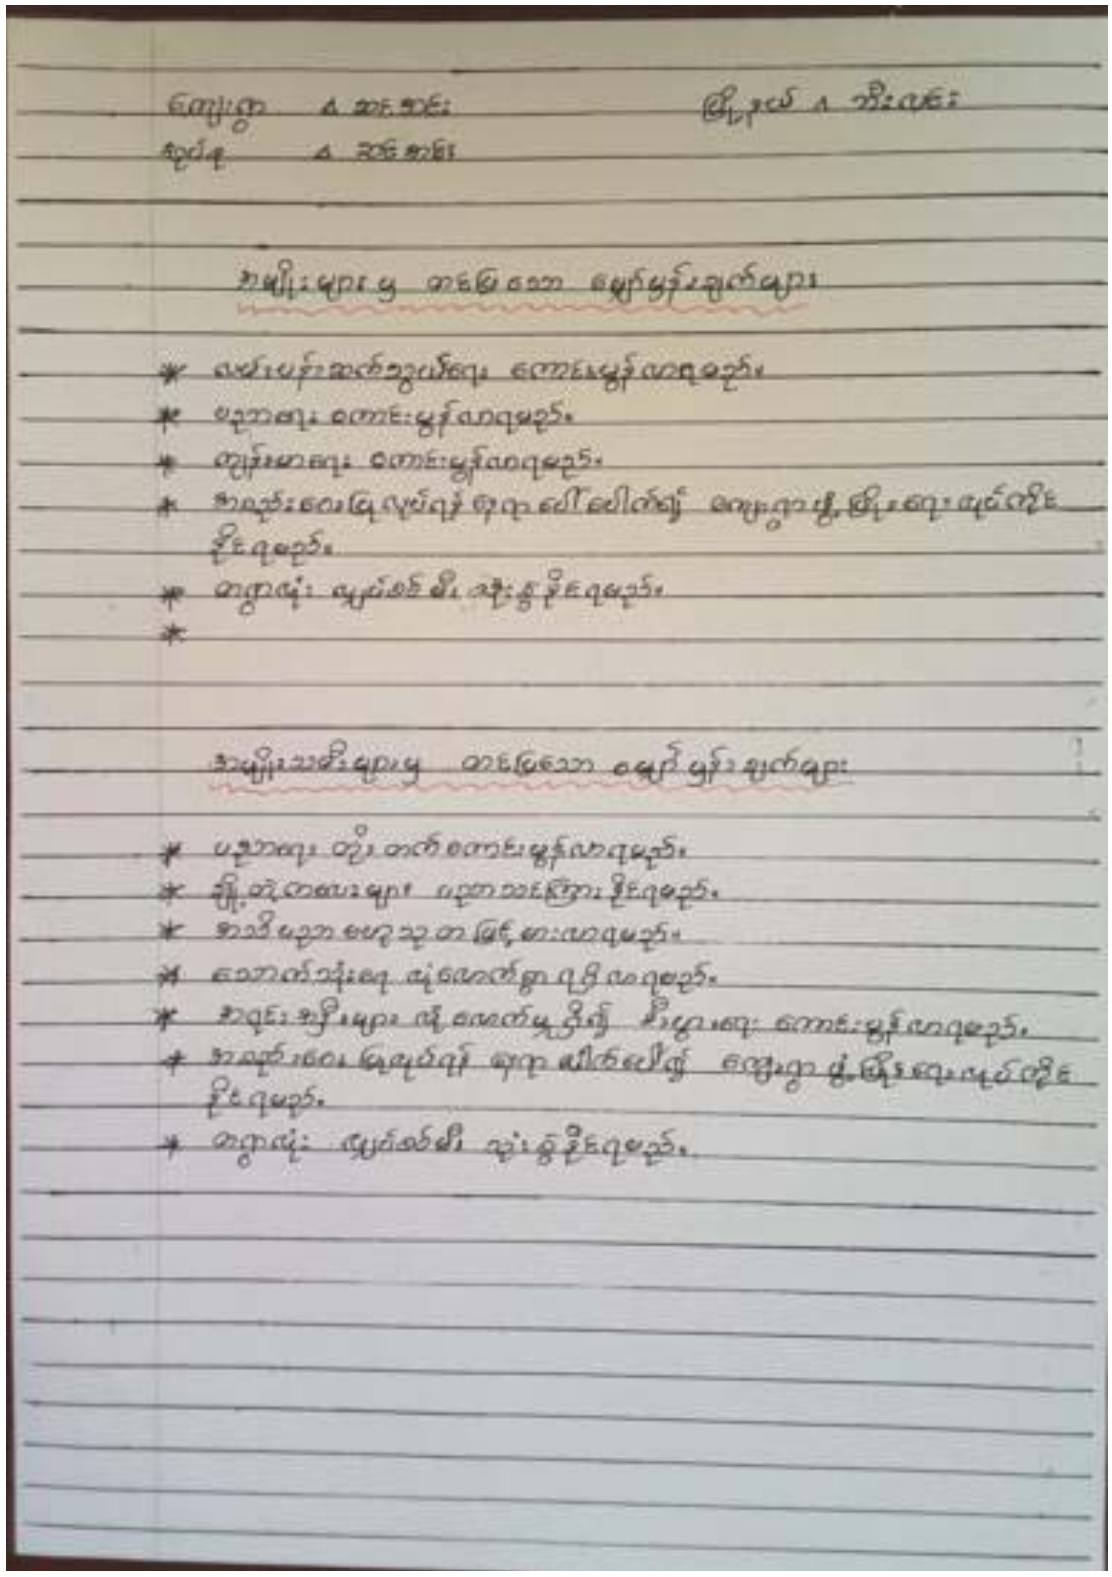 ကျေးရွာ ၊ ဆင်အင်း မြို့နယ် ၊ ဘီးလင်း
အုပ်စု ၊ ဆင်အင်း
အမျိုးများမှ တင်ပြသော မျှော်မှန်းချက်များ
* လမ်းပန်းဆက်သွယ်ရေး ကောင်းမွန်လာရမည်။
* ပညာရေး ကောင်းမွန်လာရမည်။
* ကျန်းမာရေး ကောင်းမွန်လာရမည်။
* အစည်းဝေးပြုလုပ်ရန် နေရာပေါ်ပေါက်၍ ကျေးရွာဖွံ့ဖြိုးရေး လုပ်ကိုင်
နိုင်ရမည်။
* တရွာလုံး လျှပ်စစ်မီး သုံးစွဲနိုင်ရမည်။
*
အမျိုးသမီးများမှ တင်ပြသော မျှော်မှန်းချက်များ
* ပညာရေး တိုးတက်ကောင်းမွန်လာရမည်။
* ချို့တဲ့ကလေးများ ပညာသင်ကြားနိုင်ရမည်။
* အသိပညာ ဗဟုသုတ မြင့်မားလာရမည်။
* သောက်သုံးရေ လုံလောက်စွာ ရရှိလာရမည်။
* အရင်းအနှီးများ လုံလောက်မှုရှိ၍ စီးပွားရေး ကောင်းမွန်လာရမည်။
* အစည်းဝေးပြုလုပ်ရန် နေရာပေါက်ပေါ်၍ ကျေးရွာဖွံ့ဖြိုးရေးလုပ်ကိုင်
နိုင်ရမည်။
* တရွာလုံး လျှပ်စစ်မီး သုံးစွဲနိုင်ရမည်။